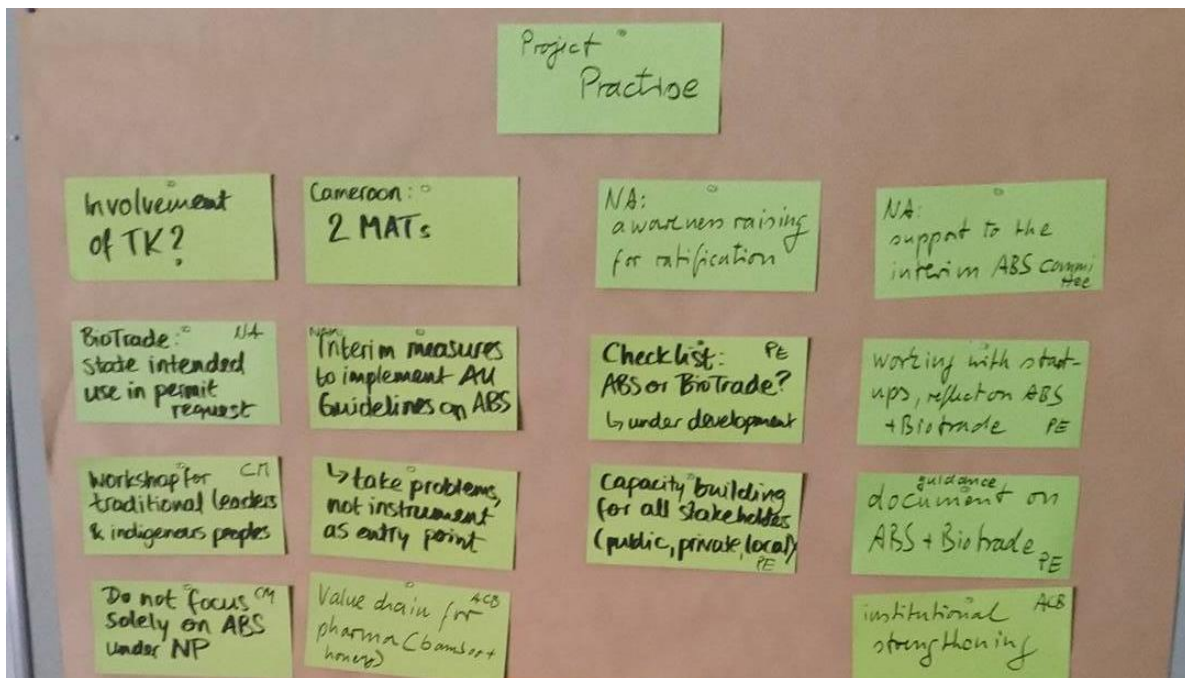 Project
Practise
Involvement
of TK?
Cameroon:
2 MATs
NA:
awareness raising
for ratification
NA:
support to the
interim ABS commi
ttee
BioTrade: NA
state intended
use in permit
request
NAM:
Interim measures
to implement AU
Guidelines on ABS
Checklist: PE
ABS or BioTrade?
↳ under development
working with start-
ups, reflect on ABS
+ Biotrade PE
Workshop for CM
traditional leaders
& indigenous peoples
↳ take problems,
not instrument
as entry point
capacity building
for all stakeholdes
(public, private, local)
PE
guidance
document on
ABS + Biotrade
PE
Do not focus CM
solely on ABS
under NP
Value chain for ACB
pharma (bamboo +
honey)
institutional ACB
strengthening